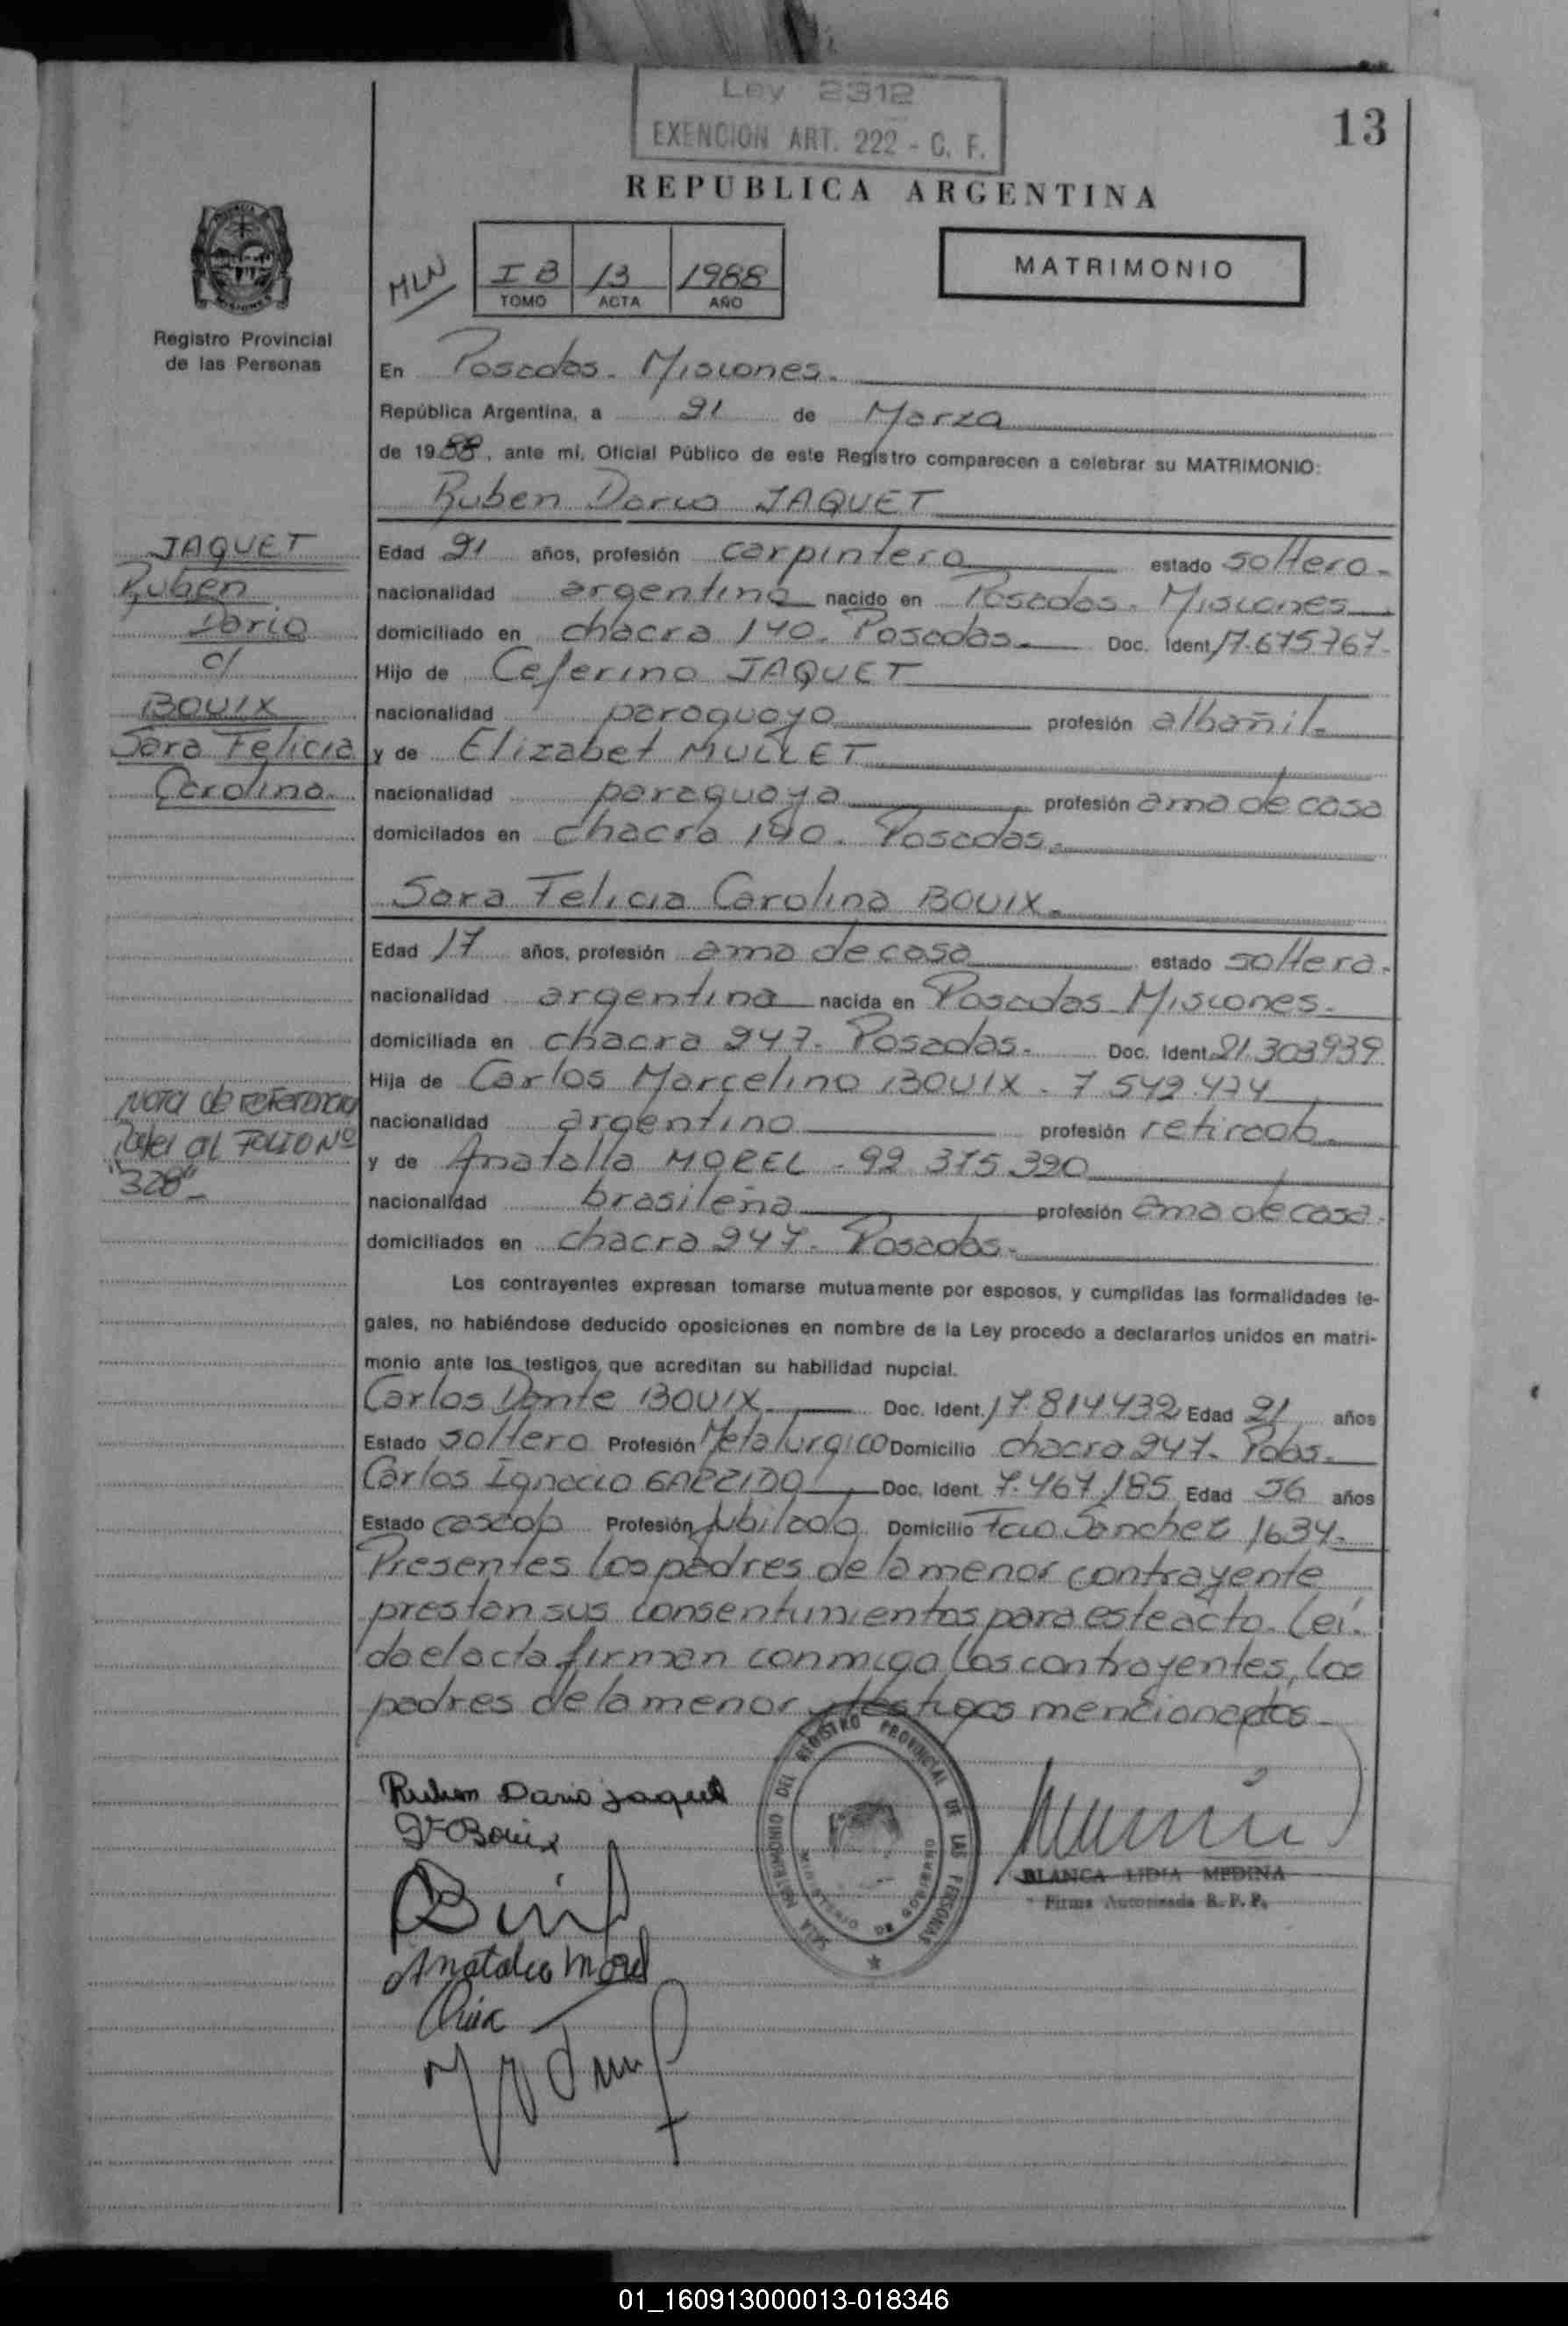 Ley 2312
EXENCION ART. 222 - C. F.
13
REPUBLICA ARGENTINA
MLN
I B 13 1988
TOMO ACTA AÑO
MATRIMONIO
Registro Provincial
de las Personas
En Posadas - Misiones.
República Argentina, a 21 de Marzo
de 1988, ante mí, Oficial Público de este Registro comparecen a celebrar su MATRIMONIO:
Ruben Dario JAQUET
JAQUET
Ruben
Dario
c/
BOUIX
Sara Felicia
Carolina
Edad 21 años, profesión carpintero estado soltero-
nacionalidad argentina nacido en Posadas - Misiones
domiciliado en chacra 140. Posadas. Doc. Ident. 17.675767-
Hijo de Ceferino JAQUET
nacionalidad paraguayo profesión albañil-
y de Elizabet MULLET
nacionalidad paraguaya profesión ama de casa
domicilados en chacra 140. Posadas.
Sara Felicia Carolina BOUIX.
Edad 17 años, profesión ama de casa estado soltera.
nacionalidad argentina nacida en Posadas - Misiones.
domiciliada en chacra 247. Posadas. Doc. Ident. 21.303939
Hija de Carlos Marcelino BOUIX - 7.542.474
nacionalidad argentino profesión retirado.
y de Anatalia MOREL - 92 375.390
nacionalidad brasileña profesión ama de casa.
domiciliados en chacra 247. Posadas.
Nota de referencia
al FOLIO Nº
"328"-
Los contrayentes expresan tomarse mutuamente por esposos, y cumplidas las formalidades le-
gales, no habiéndose deducido oposiciones en nombre de la Ley procedo a declararlos unidos en matri-
monio ante los testigos que acreditan su habilidad nupcial.
Carlos Dante BOUIX. Doc. Ident. 17.814.432 Edad 21 años
Estado soltero Profesión Metalurgico Domicilio chacra 247. Pdas.
Carlos Ignacio GARRIDO Doc. Ident. 7.467.185 Edad 56 años
Estado casado Profesión jubilado Domicilio Fco Sanchez 1634-
Presentes los padres de la menor contrayente
prestan sus consentimientos para este acto. Leí-
da el acta firman conmigo los contrayentes, los
padres de la menor y testigos mencionados
Ruben Dario Jaquet
Bouix
Anatalia Morel
SALA MATRIMONIO DEL REGISTRO PROVINCIAL DE LAS PERSONAS
MINISTERIO DE GOBIERNO
BLANCA LIDIA MEDINA
Firma Autorizada R. P. P.
01_160913000013-018346